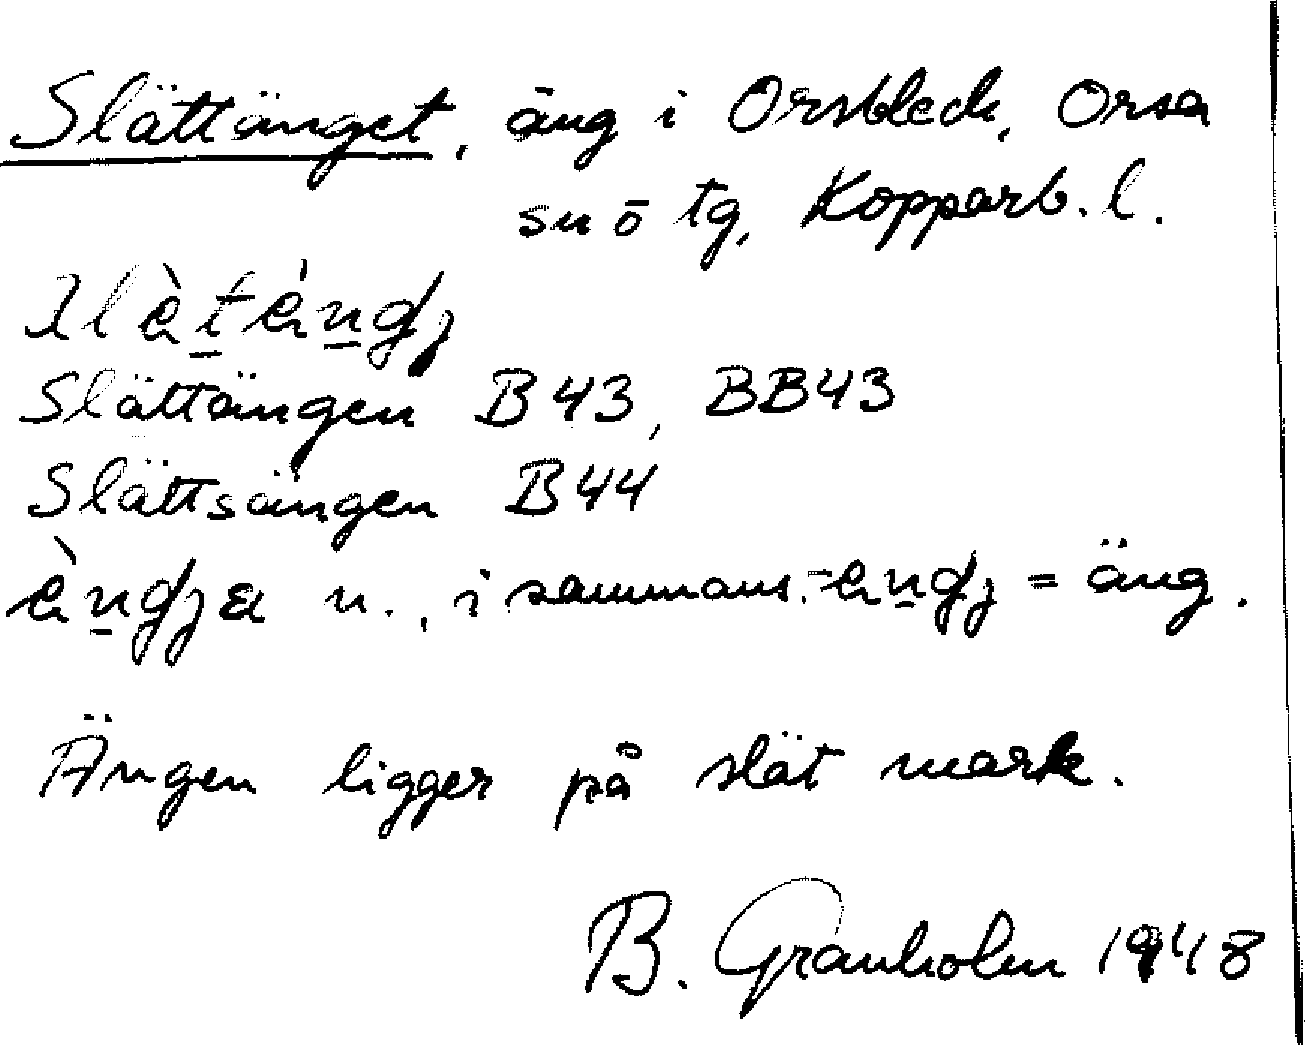 Slättänget, äng i Orsbleck, Orsa
sn ö tg, Kopparb. l.
Slättängen B43, BB43
Slättsängen B44
n., i sammans. = äng.
Ängen ligger på slät mark.
B. Granholm 1948